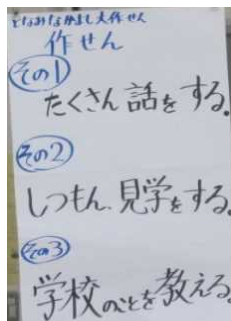 となみなかよし大作せん
作せん
その1
たくさん話をする。
その2
しつもん、見学をする。
その3
学校のことを教える。